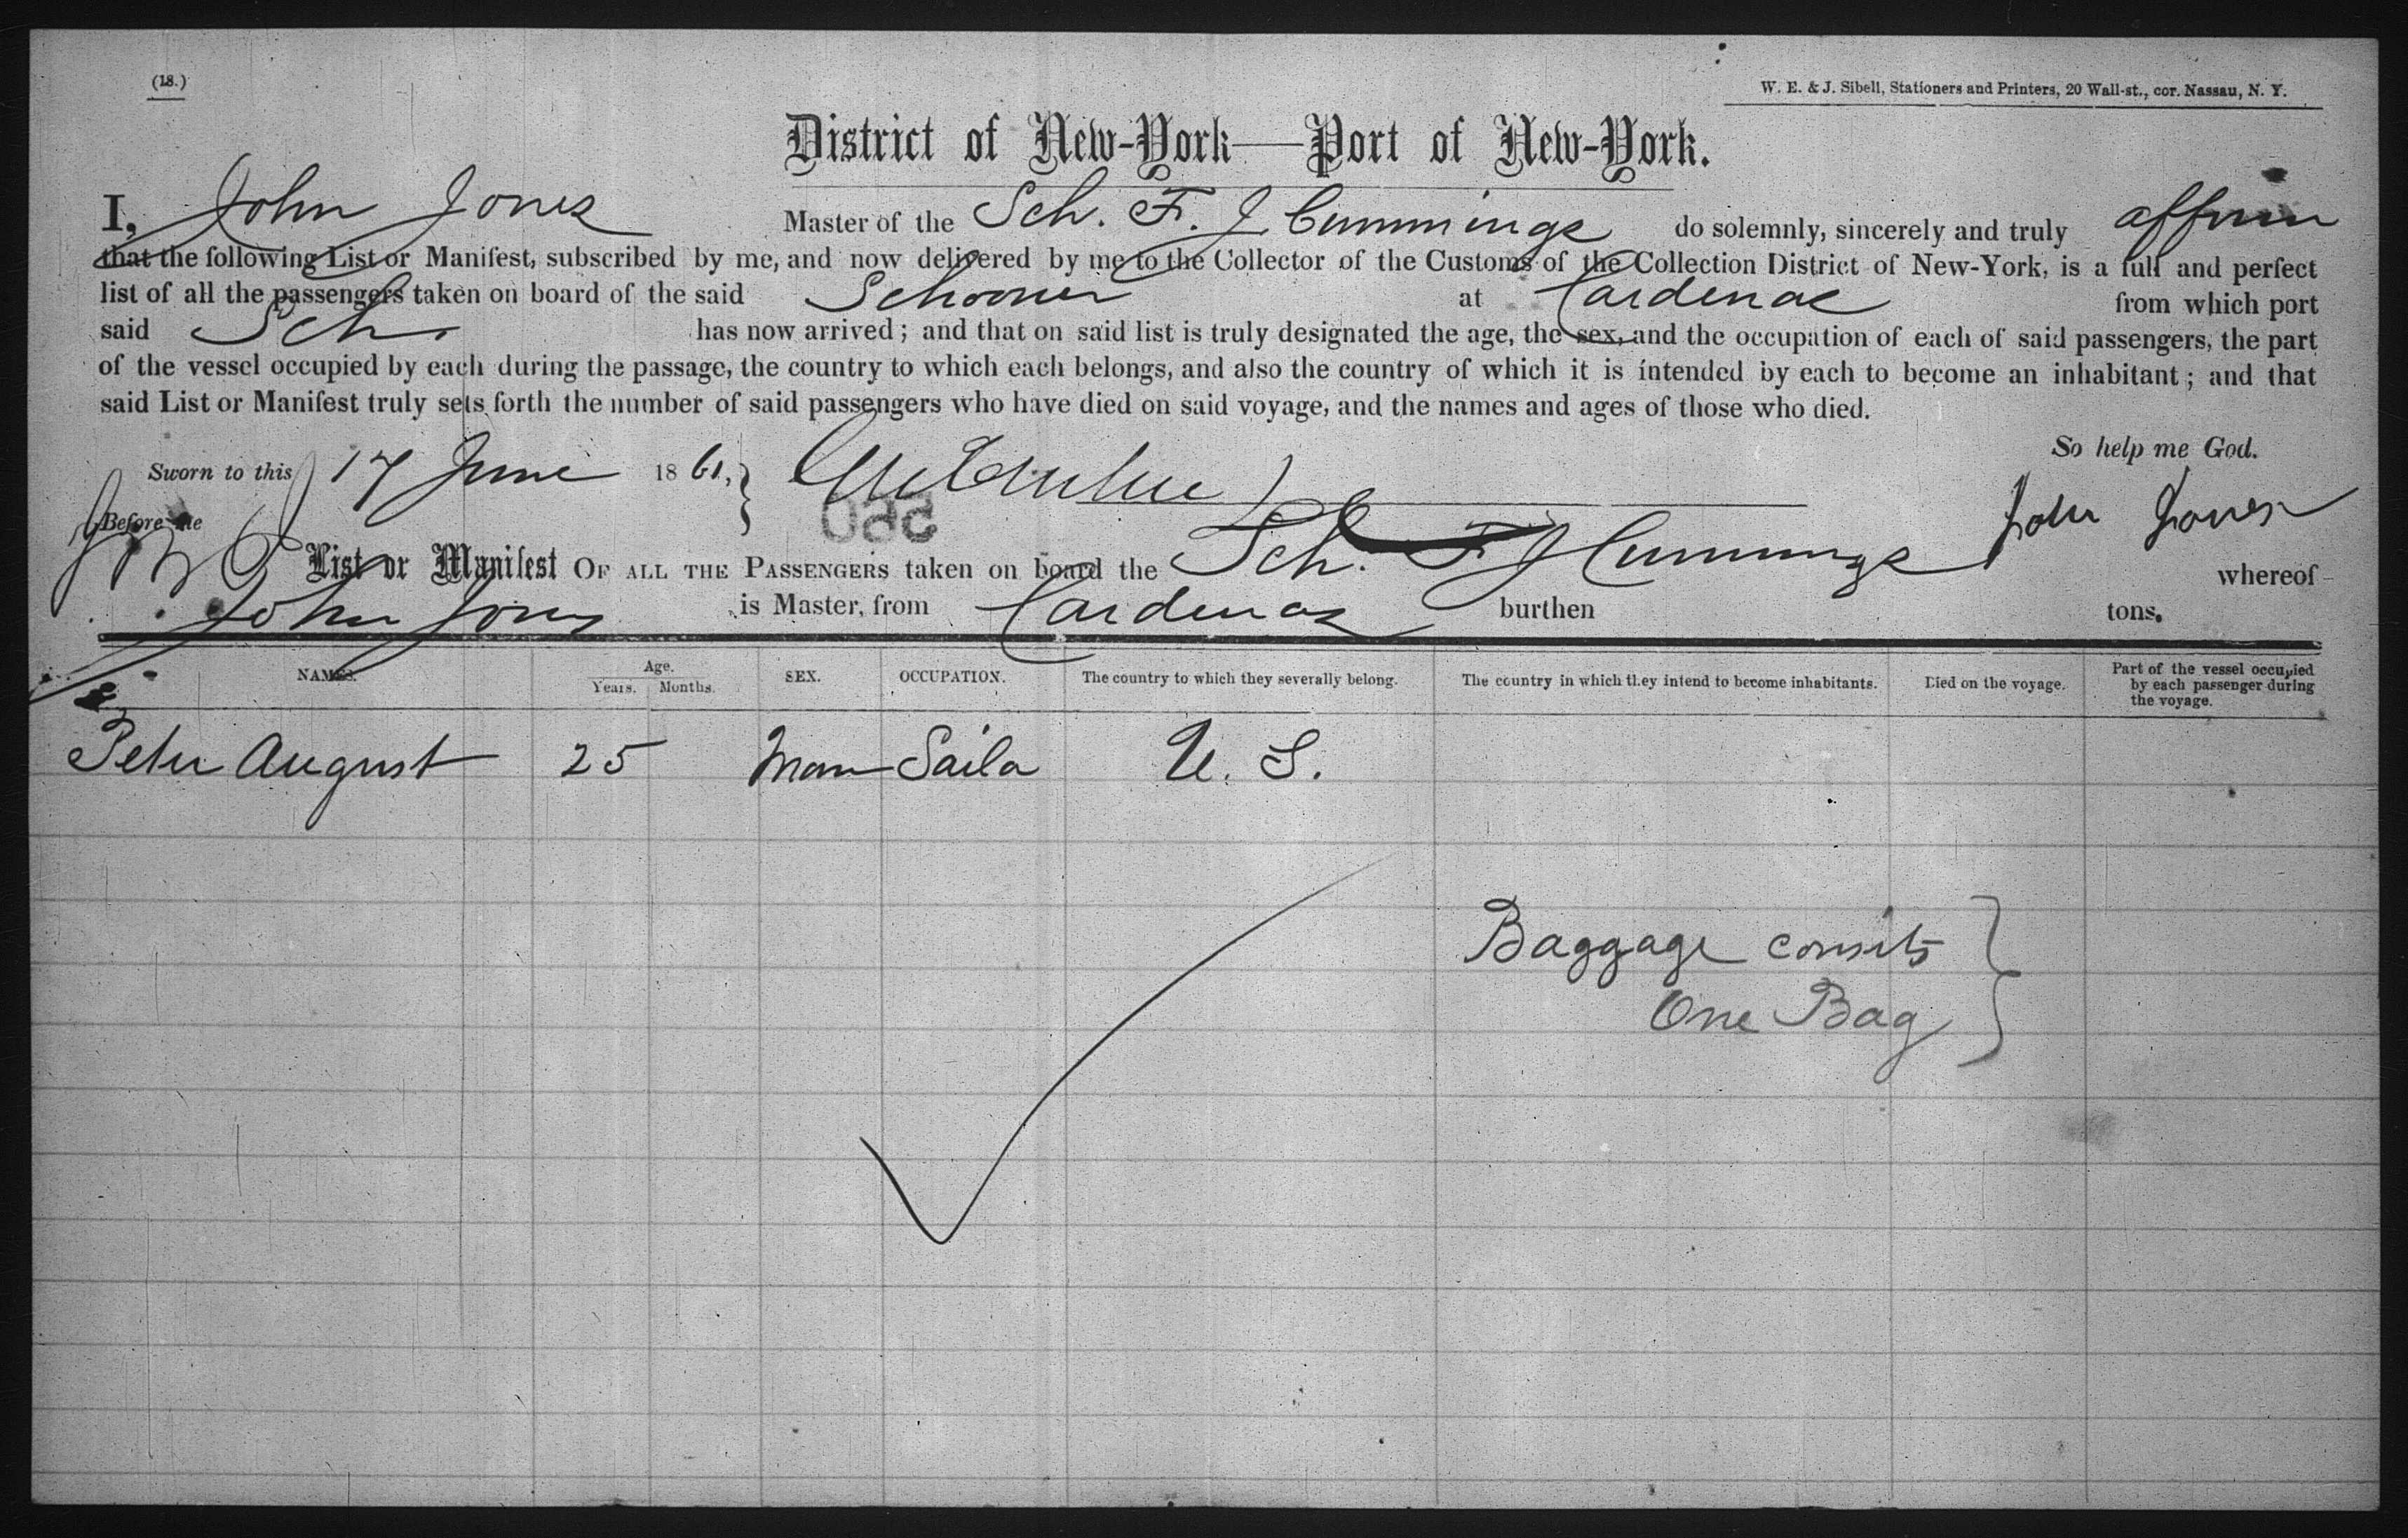 (18.)
W. E. & J. Sibell, Stationers and Printers, 20 Wall-st., cor. Nassau, N. Y.
District of New-York—Port of New-York.
I, John Jones Master of the Sch. F. J Cummings do solemnly, sincerely and truly affirm
that the following List or Manifest, subscribed by me, and now delivered by me to the Collector of the Customs of the Collection District of New-York, is a full and perfect
list of all the passengers taken on board of the said Schooner at Cardenas from which port
said Sch. has now arrived; and that on said list is truly designated the age, the sex, and the occupation of each of said passengers, the part
of the vessel occupied by each during the passage, the country to which each belongs, and also the country of which it is intended by each to become an inhabitant; and that
said List or Manifest truly sets forth the number of said passengers who have died on said voyage, and the names and ages of those who died.
So help me God.
Sworn to this 17 June 1861,
John Jones
Before me
550
List or Manifest OF ALL THE PASSENGERS taken on board the Sch. F J Cummings whereof
John Jones is Master, from Cardenas burthen tons.
NAMES. Age. Years. Months. SEX. OCCUPATION. The country to which they severally belong. The country in which they intend to become inhabitants. Died on the voyage. Part of the vessel occupied by each passenger during the voyage.
Peter August 25 Man Saila U. S.
Baggage consits
One Bag